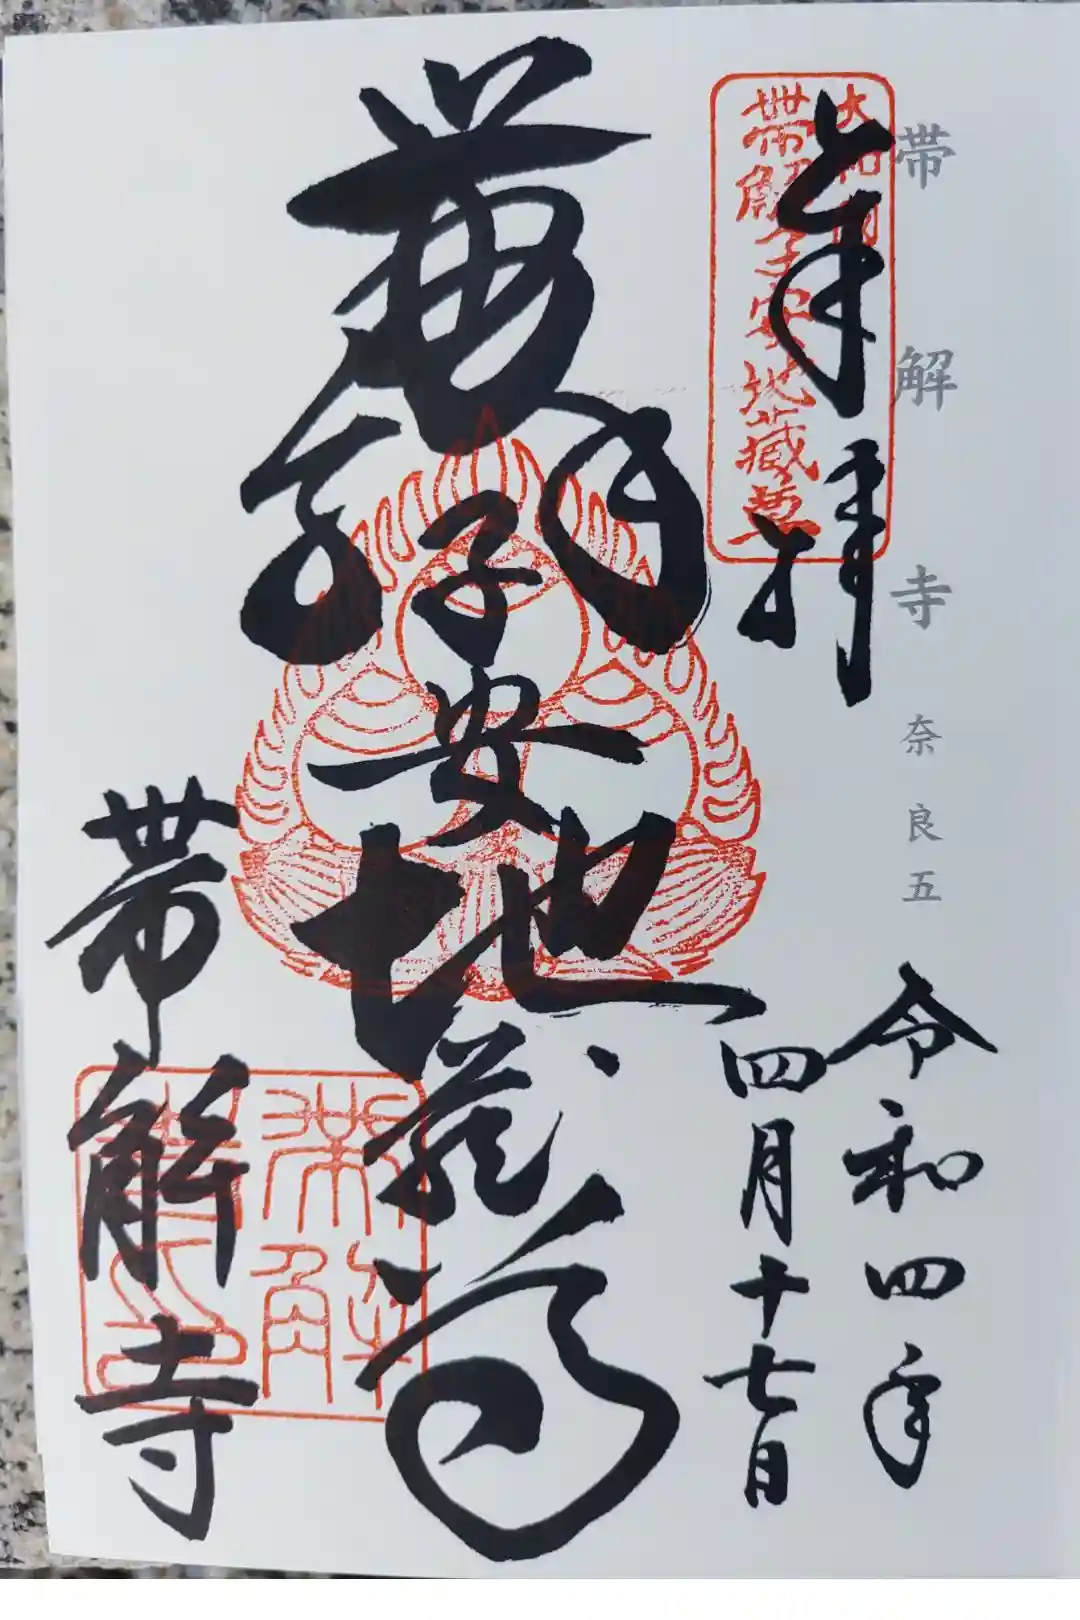 帯解寺 奈良五
奉拝
大和国
帯解子安地蔵尊
令和四年
四月十七日
帯解子安地蔵尊
帯解寺
帯解